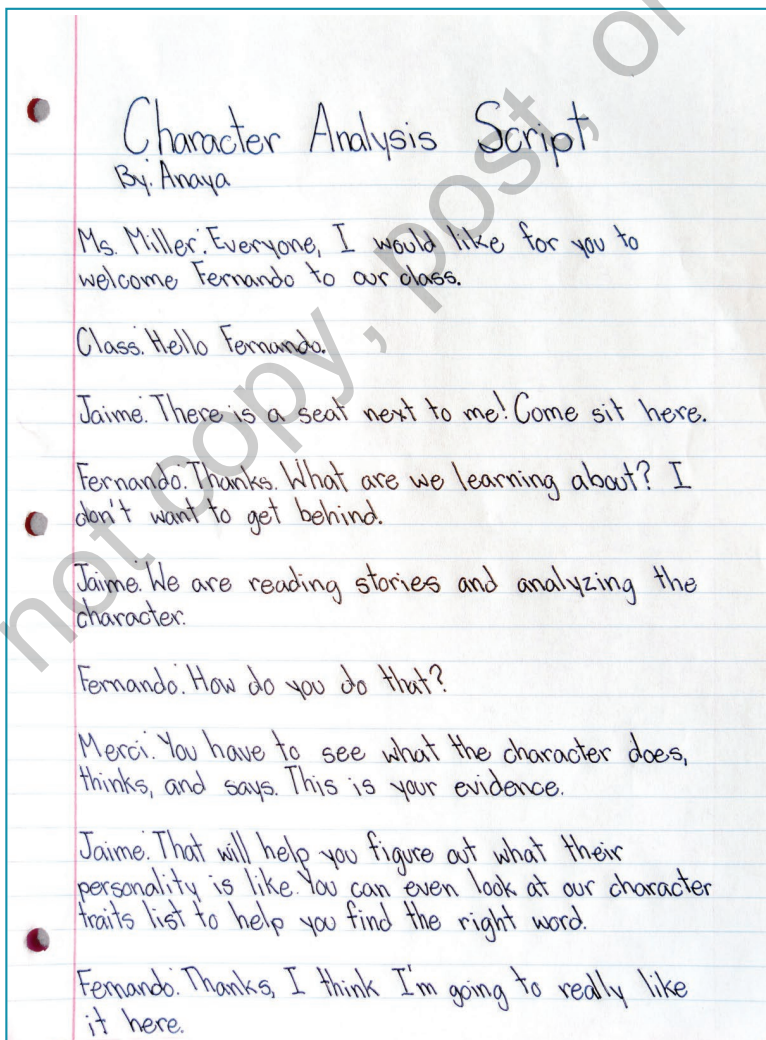 Character Analysis Script
By: Anaya
Ms. Miller: Everyone, I would like for you to
welcome Fernando to our class.
Class: Hello Fernando.
Jaime: There is a seat next to me! Come sit here.
Fernando: Thanks. What are we learning about? I
don't want to get behind.
Jaime: We are reading stories and analyzing the
character.
Fernando: How do you do that?
Merci: You have to see what the character does,
thinks, and says. This is your evidence.
Jaime: That will help you figure out what their
personality is like. You can even look at our character
traits list to help you find the right word.
Fernando: Thanks, I think I'm going to really like
it here.
not copy, post, or